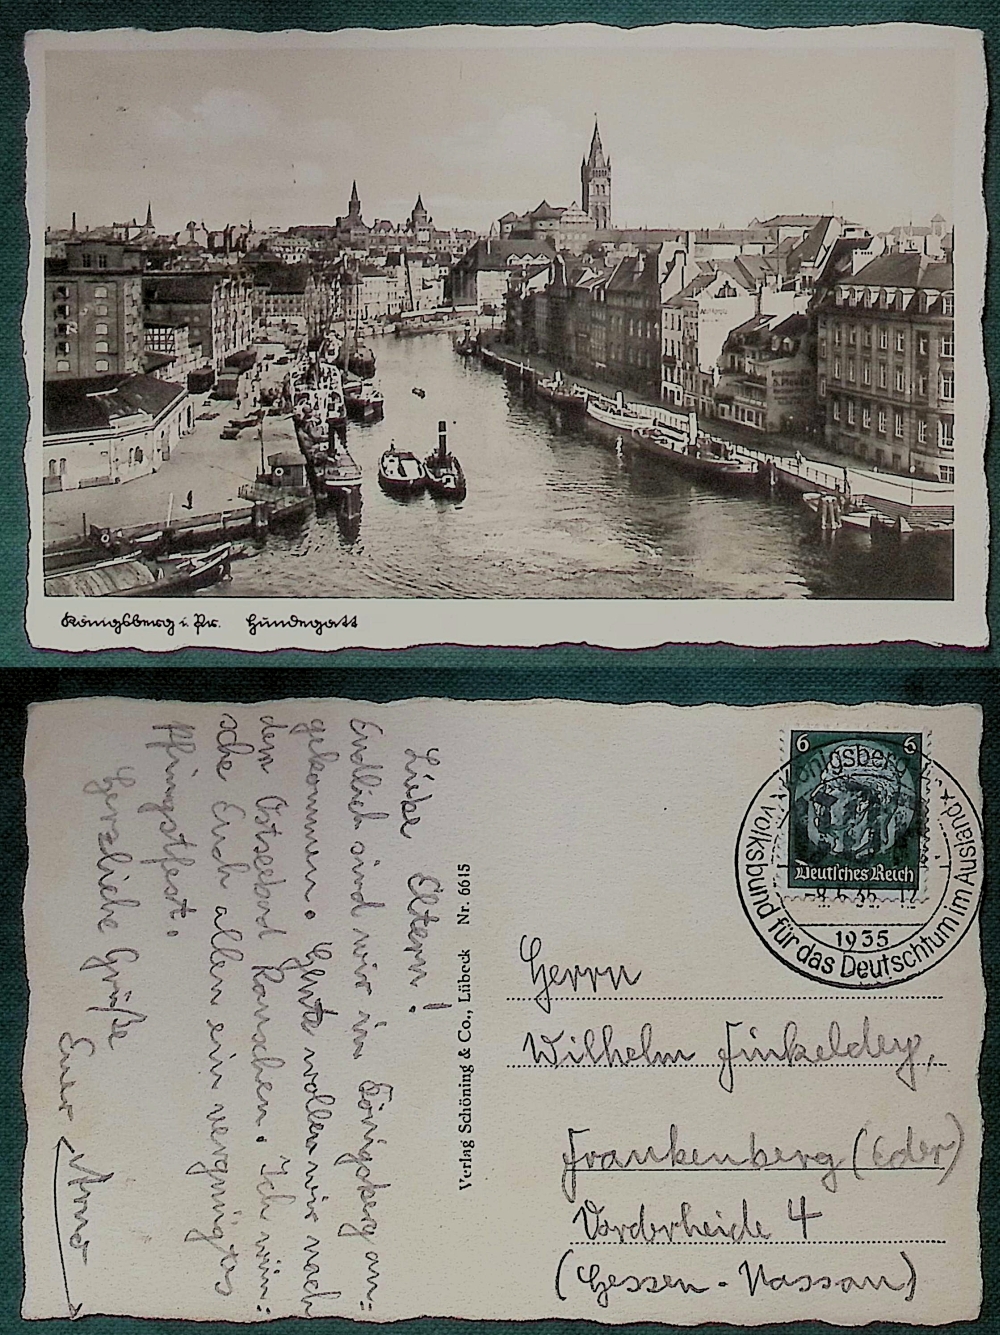 Königsberg i. Pr. Hundegatt
Liebe Eltern!
Endlich sind wir in Königsberg an=
gekommen. Heute wollen wir nach
dem Ostseebad Rauschen. Ich wün=
sche Euch allen ein vergnügtes
Pfingstfest.
Herzliche Grüße
Euer
Verlag Schöning & Co., Lübeck Nr. 6615
6 6
Deutsches Reich
Königsberg
1935
Volksbund für das Deutschtum im Ausland
Herrn
Wilhelm Finkeldey,
Frankenberg (Eder)
Vorderheide 4
(Hessen-Nassau)